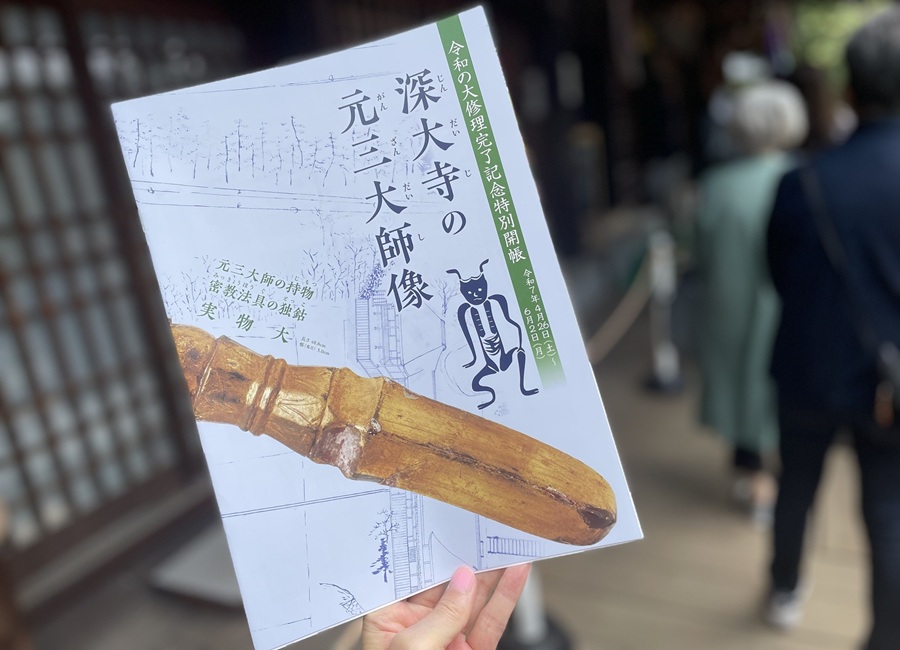 令和の大修理完了記念特別開帳 令和7年4月26日(土)〜
6月2日(月)
深大寺の
じんだいじ
元三大師像
がんざんだいし
元三大師の持物
密教法具の独鈷
実物大